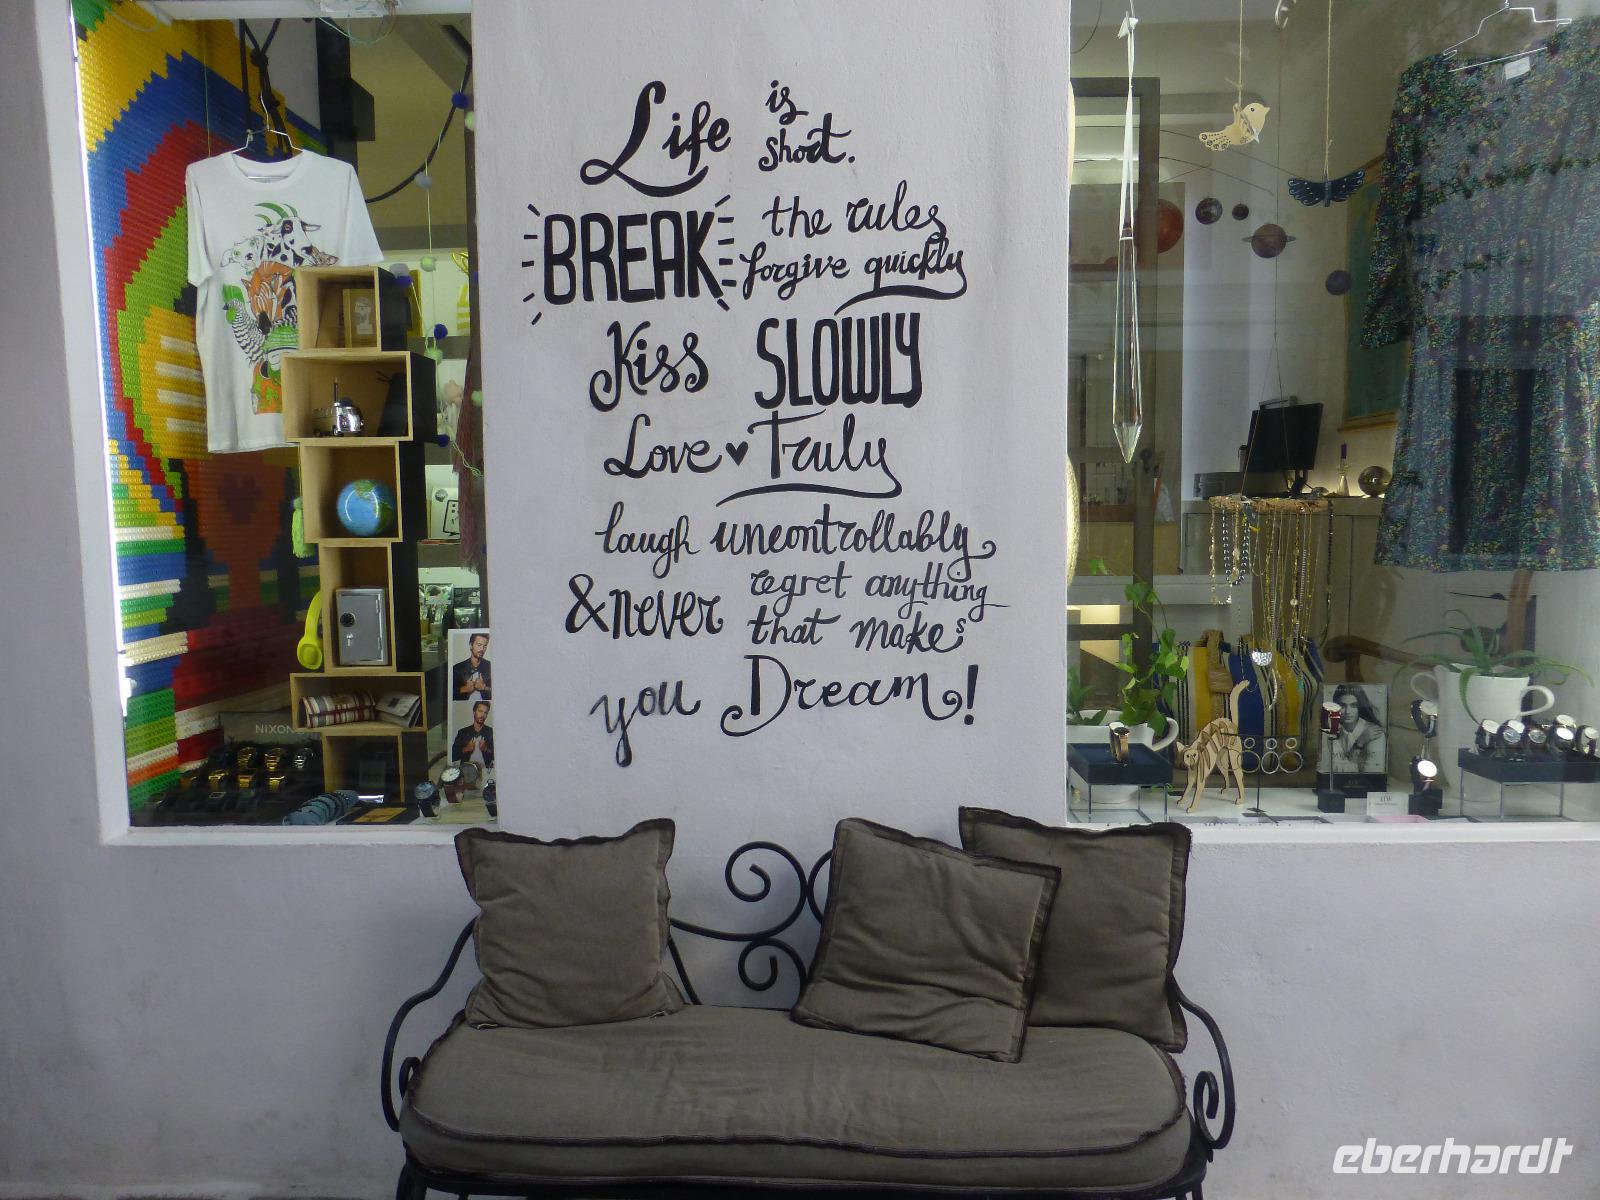 Life is short.
BREAK the rules
forgive quickly
Kiss SLOWLY
Love ♥ Truly
laugh uncontrollably
& never regret anything
that makes
you Dream!
NIXON
eberhardt